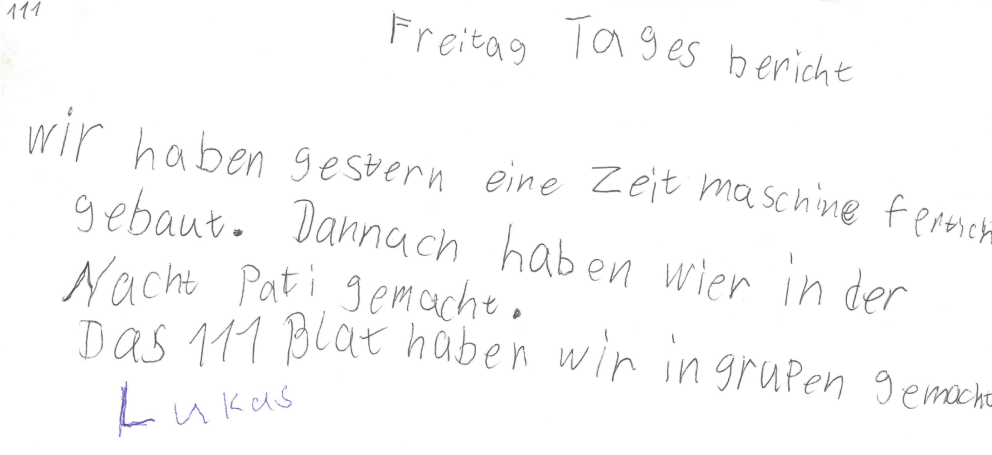 111
Freitag Tages bericht
wir haben gestern eine Zeit maschine fertich
gebaut. Dannach haben wier in der
Nacht Pati gemacht.
Das 111 Blat haben wir in grupen gemacht
Lukas